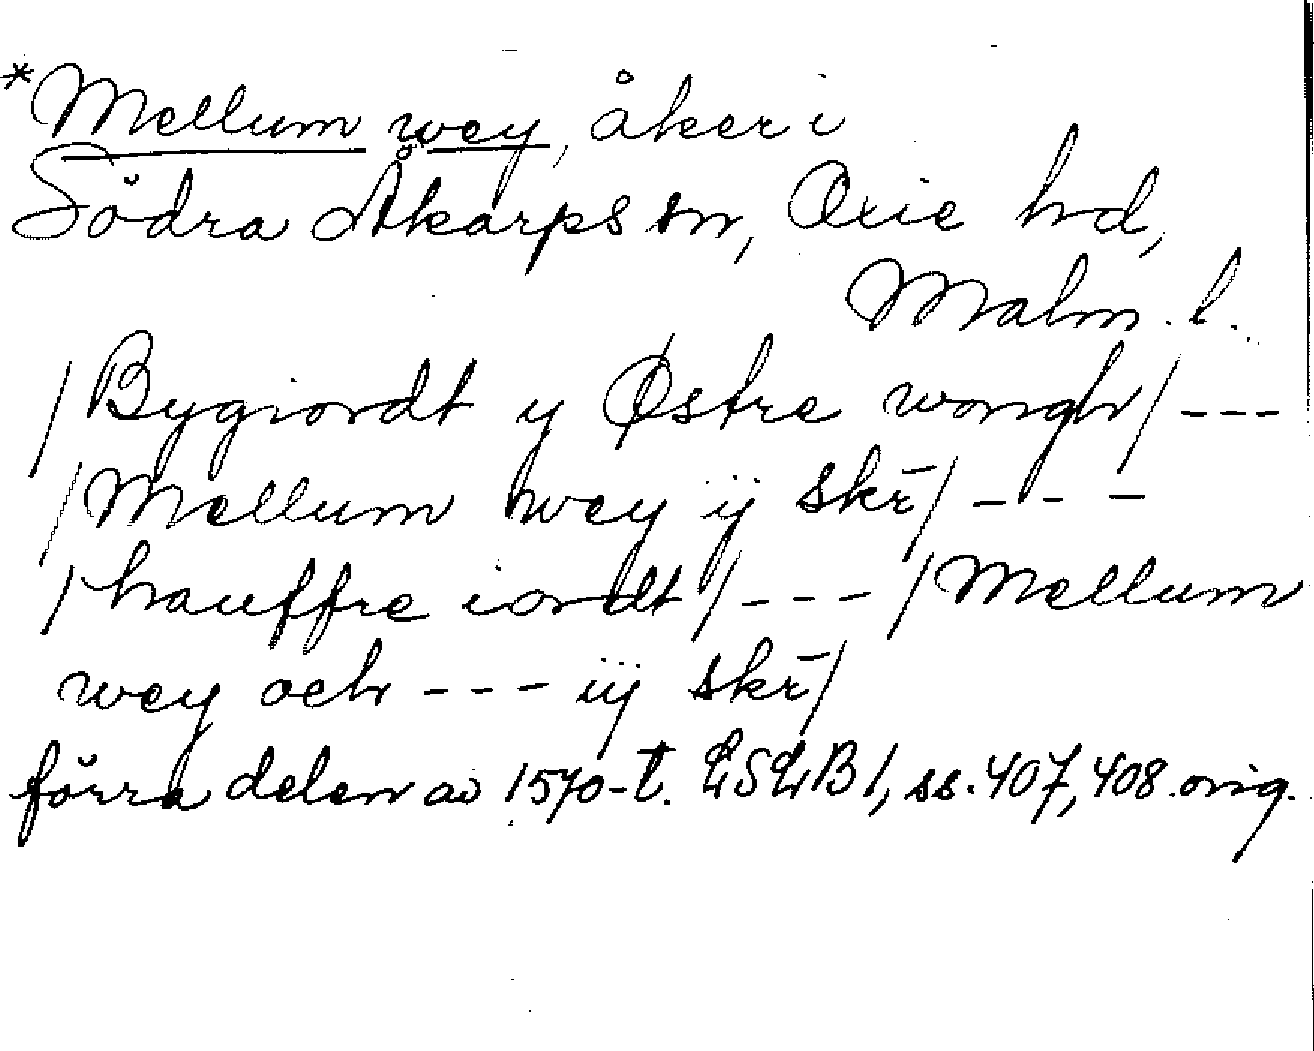 *Mellum wey, åker i
Södra Åkarps sn, Oxie hd,
Malm. l.
/Bygiordt y Østre wongh/ ---
/Mellum wey ij skr̄/ ---
/hauffre iordt/ --- /Mellum
wey och --- iij skr̄/
förra delen av 1570-t. LSLB 1, ss. 407, 408. orig.